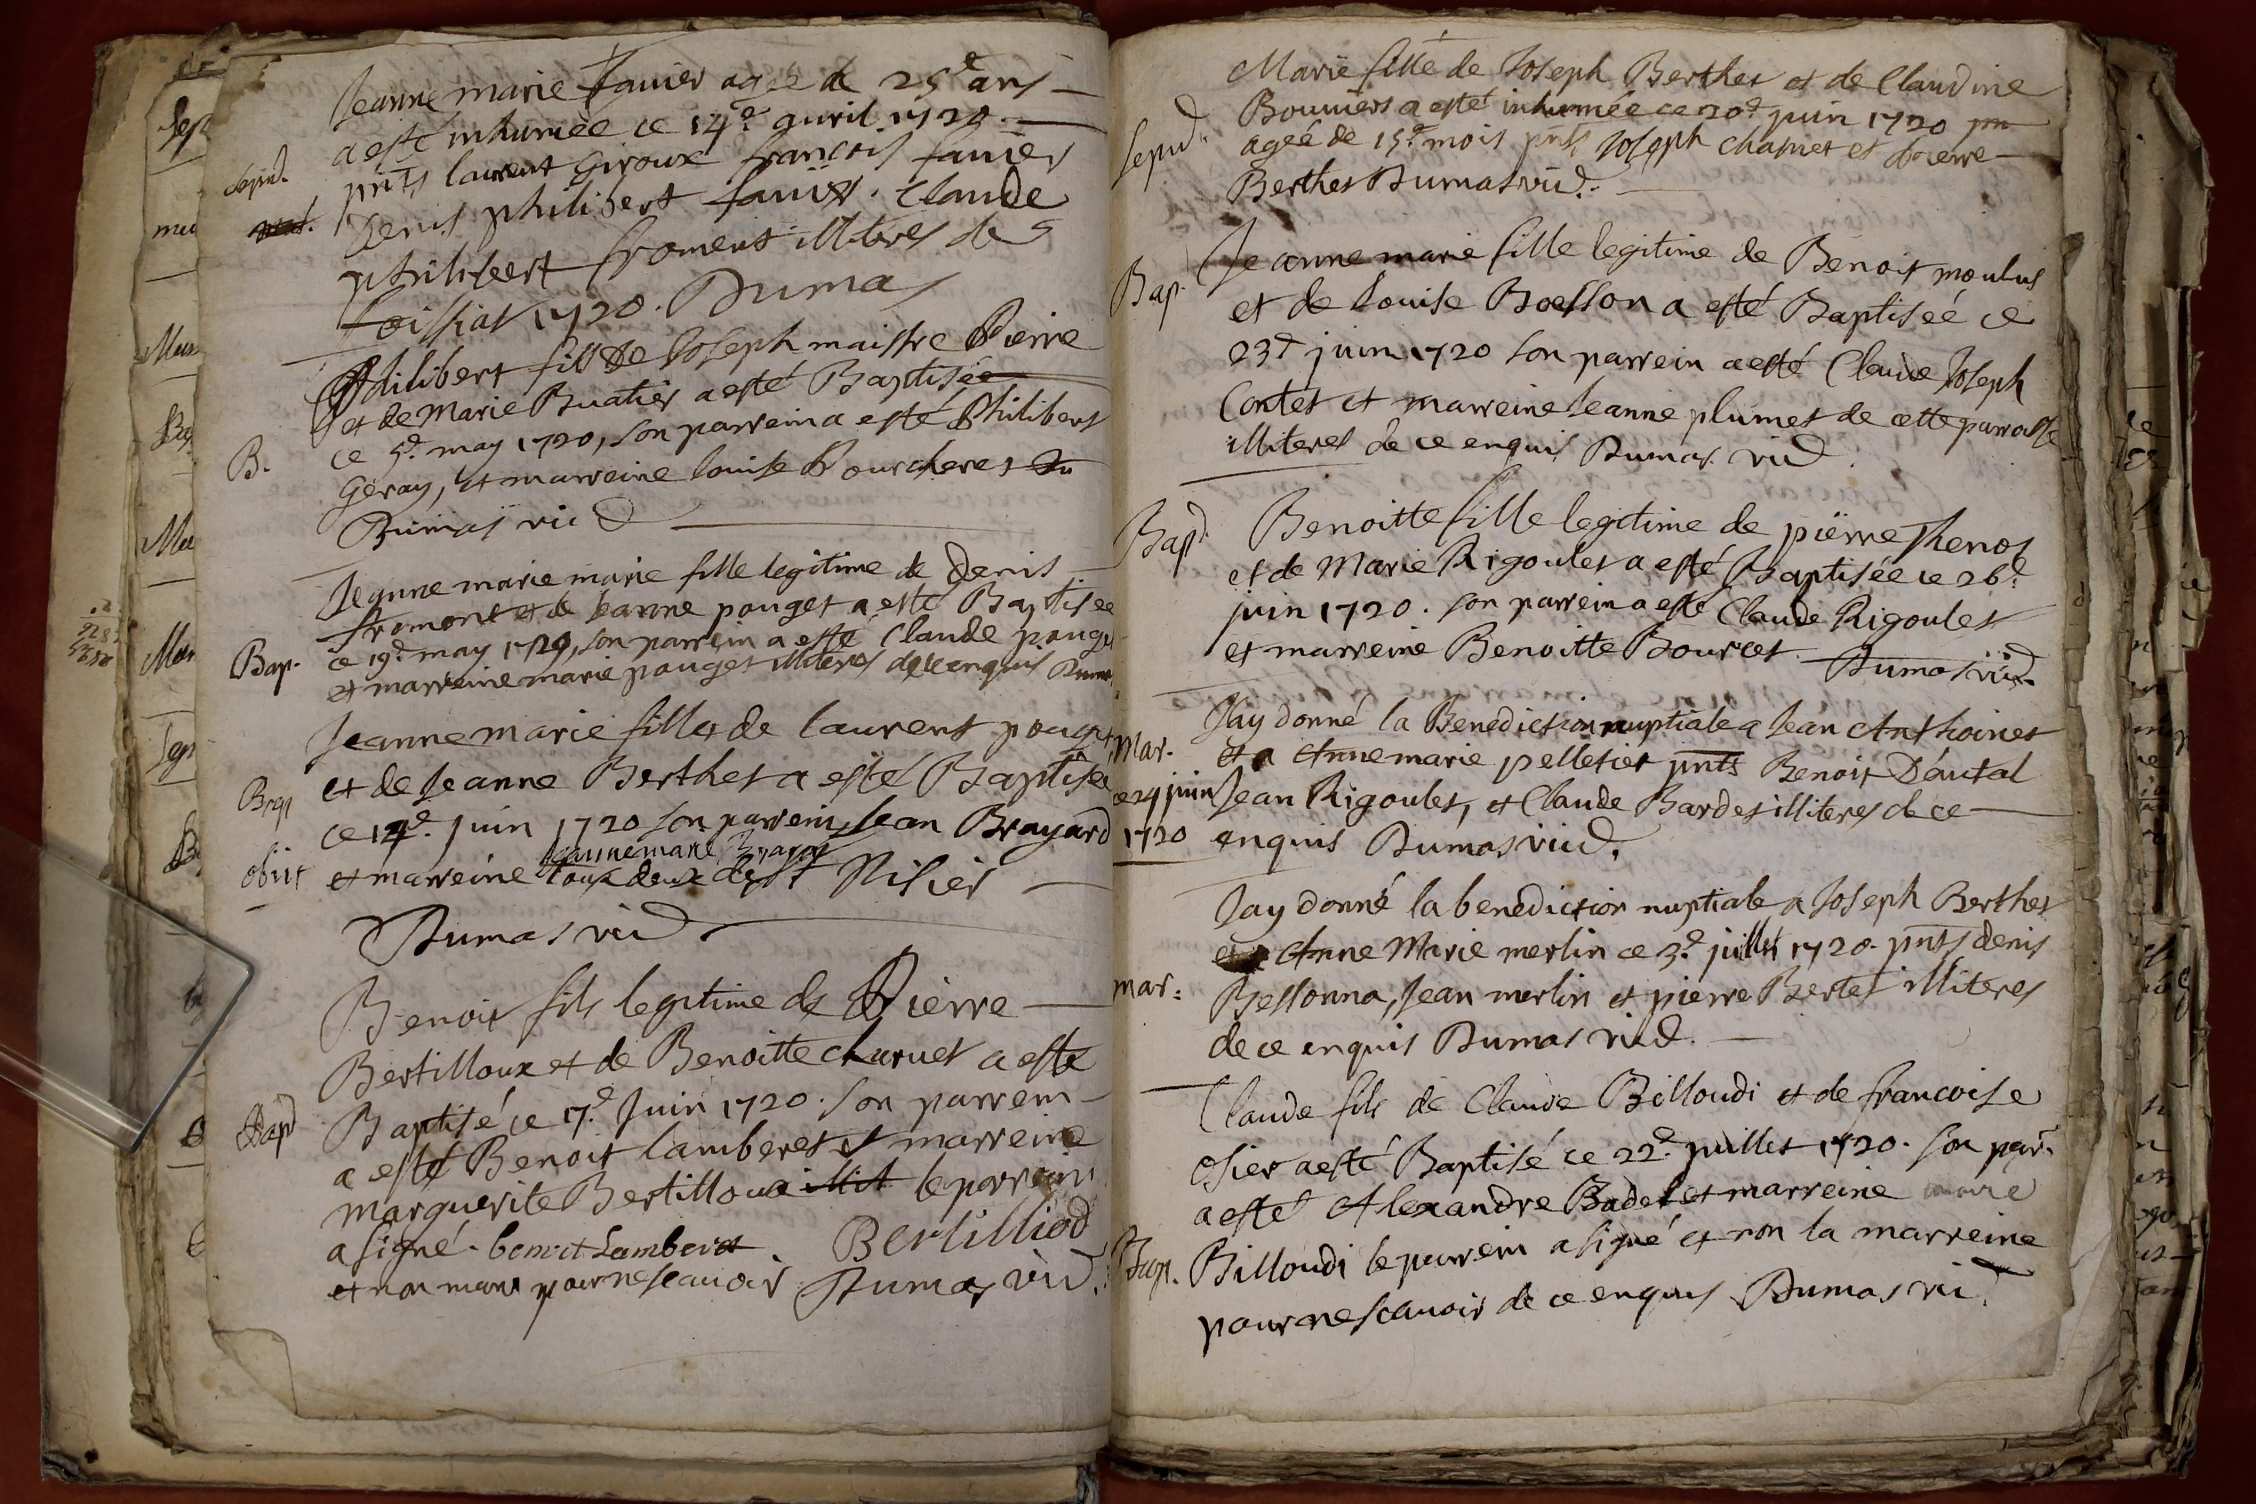 Jeanne marie fauier agée de 25e ans
Sepud. a esté inhumèe ce 14e. auril 1720.
pnts laurent Giroux françois fauier
Denis philibert fauier. Claude
philibert froment illiteres de
foissiat 1720. Dumas
philibert fils de Joseph maistre Pierre
et de Marie Buatier a esté Baptisée
B. ce 5e. may 1720, son parrein a esté Philibert
Geray, et marreine louise Bourcheres
Dumas vic
Jeanne marie marie fille legitime de denis
fromont et de Jeanne pouget a esté Baptisée
Bap. ce 19e. may 1720, son parrein a esté Claude pouget
et marreine marie pouget illiteres de ce enquis Dumas
Jeanne marie fille de laurent pouget
et de Jeanne Berthet a esté Baptisée
Bap ce 14e. juin 1720 son parrein Jean Brayard
Jeanne marie Brayar
obiit et marreine toux deux de St Nisier
Dumas vic
Benoit fils legitime de Pierre
Bertilloux et de Benoitte charuet a esté
Bapd Baptisé ce 17e. Juin 1720. son parrein
a esté Benoit lamberet et marreine
marguerite Bertilloux illit le parrein
a signé. benoit Lamberet. Bertilliod
et non marr pour ne scauoir Dumas vic.
Marie fille de Joseph Berthet et de Claudine
Sepud. Bouuier a esté inhumée ce 20e. juin 1720
ageé de 15e. mois pnts Joseph chaynet et pierre
Berthet Dumas vic.
Bap. Jeanne marie fille legitime de Benoit moulus
et de louise Boesson a esté Baptiséé ce
23e juin 1720 son parrein a esté Claude Joseph
Contet et marreine Jeanne plumet de cette parroisse
illiteres de ce enquis Dumas. vic
Bapd. Benoitte fille legitime de pierre Thenot
et de Marie Rigoulet a esté Baptisée ce 26e.
juin 1720. son parrein a esté Claude Rigoulet
et marreine Benoitte Bourcet. Dumas vic.
Jay donné la Benediction nuptiale a Jean Anthoinet
Mar. et a Anne marie pelletier pnts Benoit Dautal
ce 24 juin Jean Rigoulet, et Claude Bardet illiteres de ce
1720 enquis Dumas vic.
Jay donné la benediction nuptiale a Joseph Berthet
et a Anne Marie merlin ce 3e. juillet 1720. pnts denis
mar: Bessonna, Jean merlin et pierre Bertet illiteres
de ce enquis Dumas vic.
Claude fils de Claude Billoudi et de francoise
Osier a esté Baptisé ce 22e. juillet 1720. son par.
a esté Alexandre Badel et marreine marie
Bap. Billoudi le parrein a signé et non la marreine
pour ne scauoir de ce enquis Dumas vic.